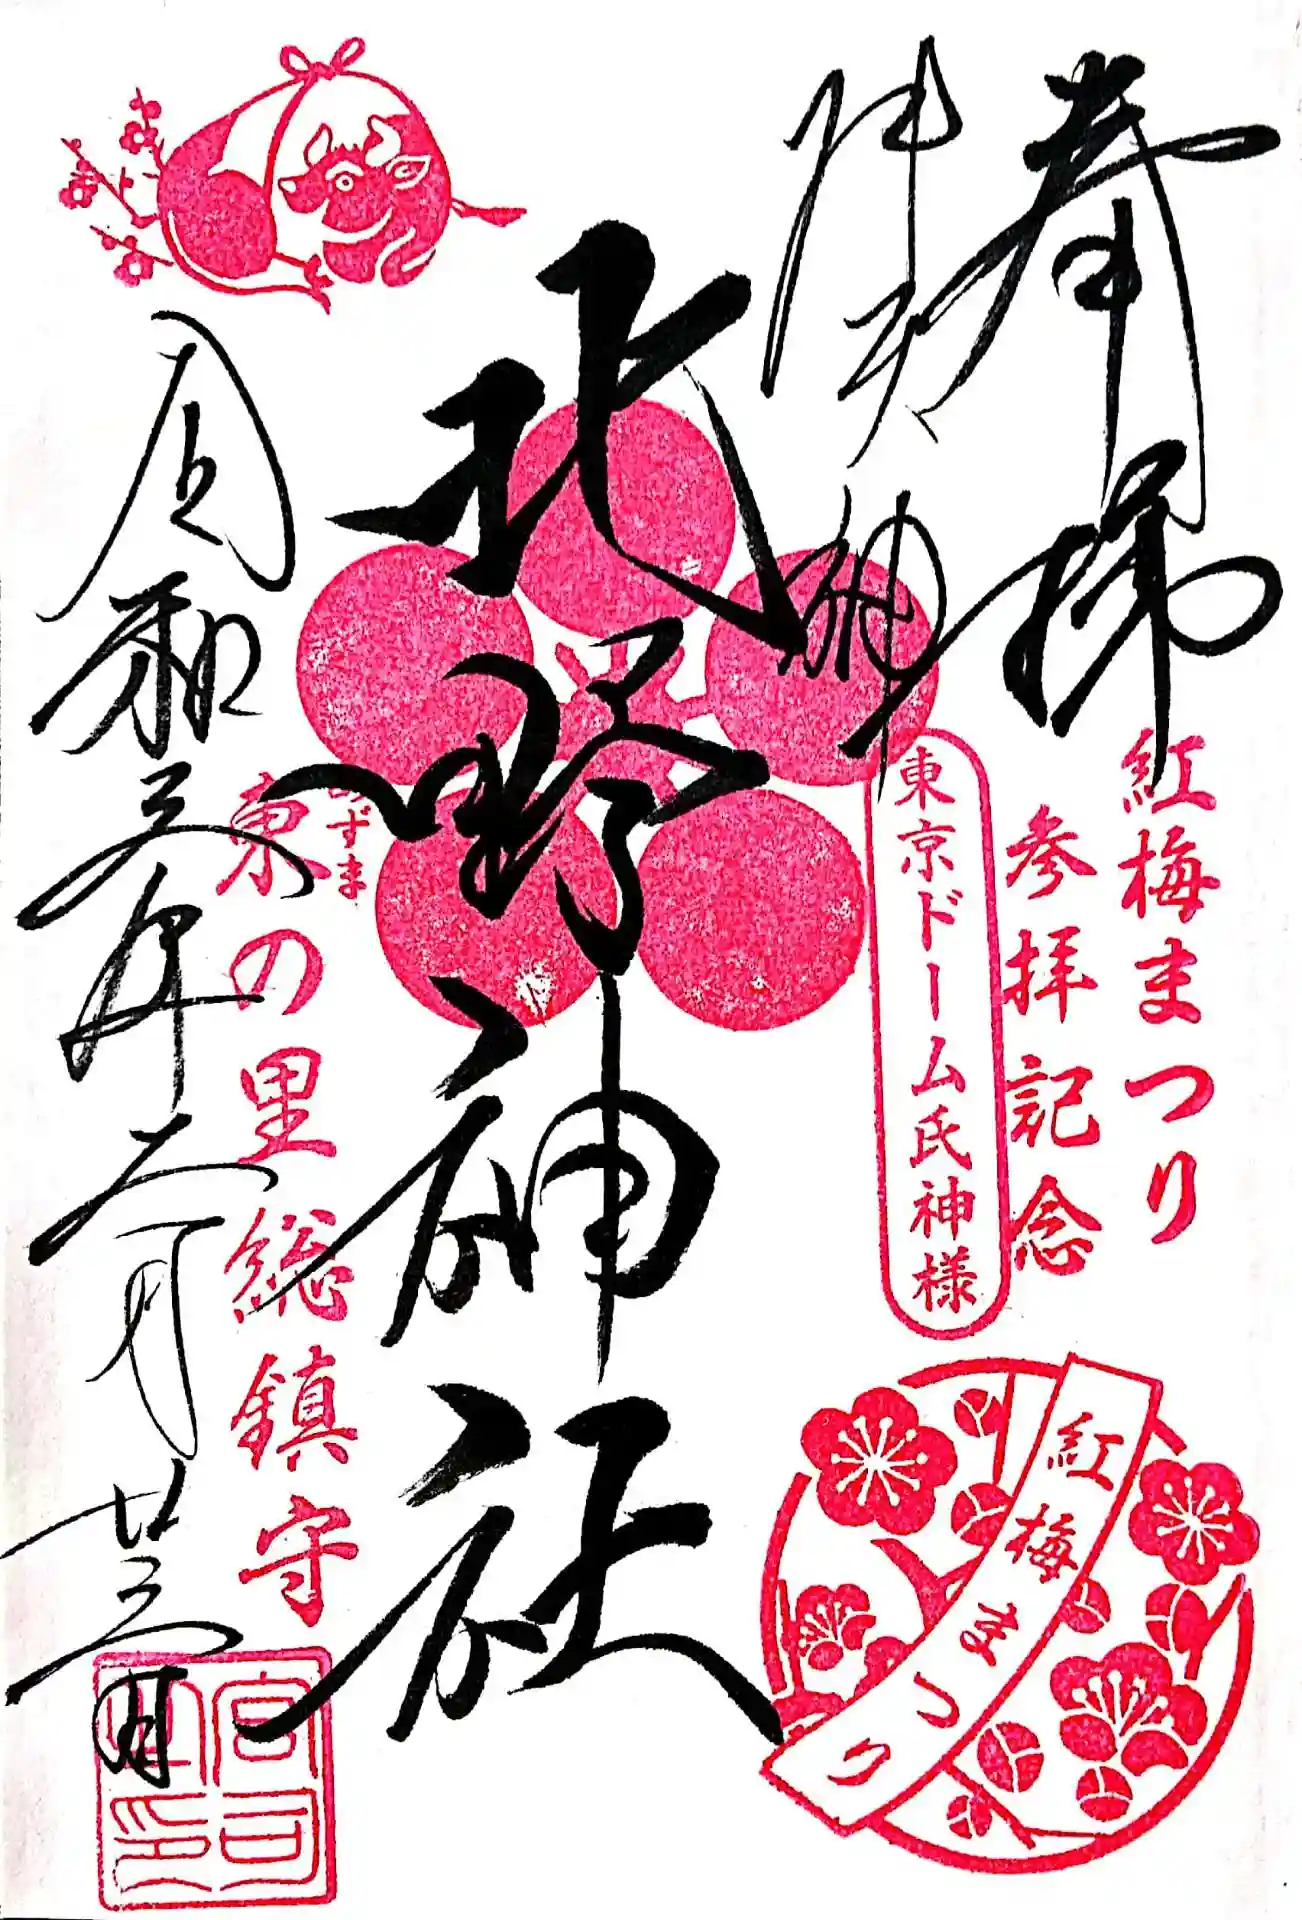 奉拝
紅梅まつり
参拝記念
東京ドーム氏神様
紅梅まつり
北野神社
あずま
東の里総鎮守
令和三年二月廿三日
宮司之印